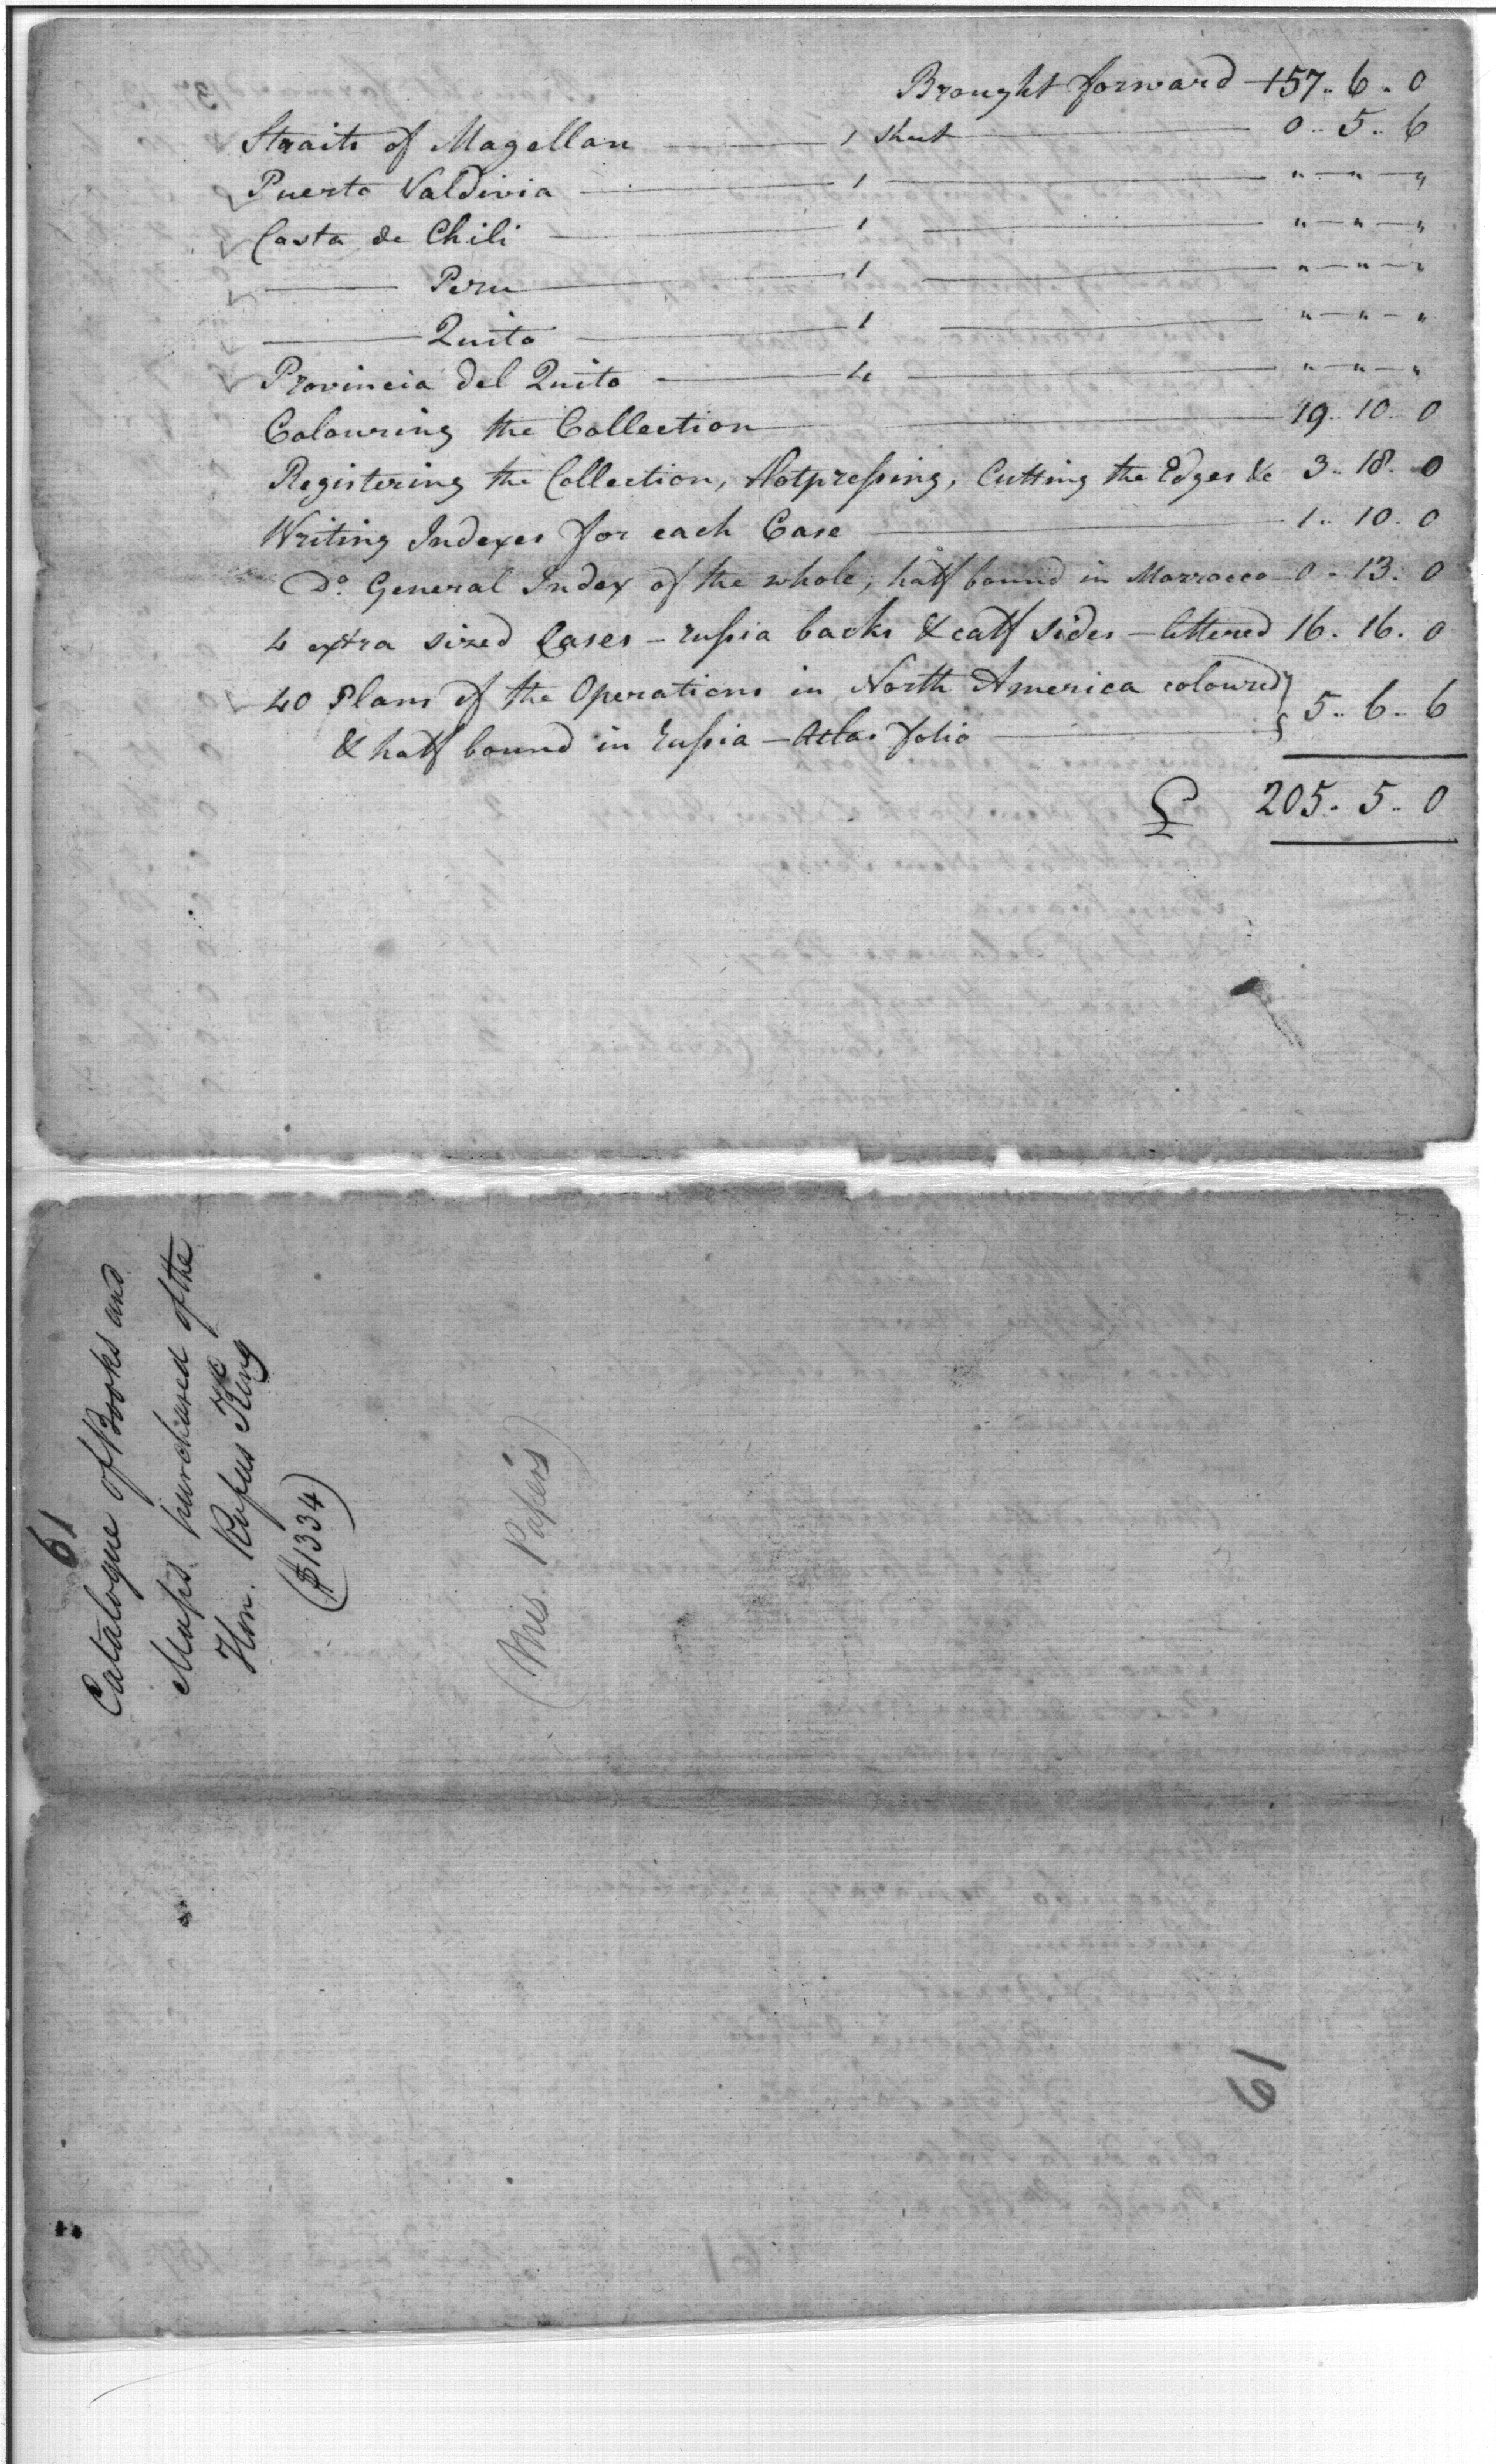 Brought forward — 157 .. 6 .. 0
Straits of Magellan — 1 sheet — 0 .. 5 .. 6
Puerto Valdivia — 1 — " — " — "
Costa de Chili — 1 — " — " — "
— Peru — 1 — " — " — "
— Quito — 1 — " — " — "
Provincia del Quito — 4 — " — " — "
Colouring the Collection — 19 .. 10 .. 0
Registering the Collection, Hotpreſsing, Cutting the Edges &c 3 .. 18 .. 0
Writing Indexes for each Case — 1 .. 10 .. 0
Do. General Index of the whole, half bound in Morrocco 0 .. 13 .. 0
4 extra sized Cases — ruſsia backs & calf sides — lettered 16 .. 16 .. 0
40 Plans of the Operations in North America coloured }
& half bound in Ruſsia — Atlas folio — } 5 .. 6 .. 6
£ 205 .. 5 .. 0
61
Catalogue of Books and
Maps purchased of the
Hon. Rufus King
($1334)
(Mis. Papers)
61